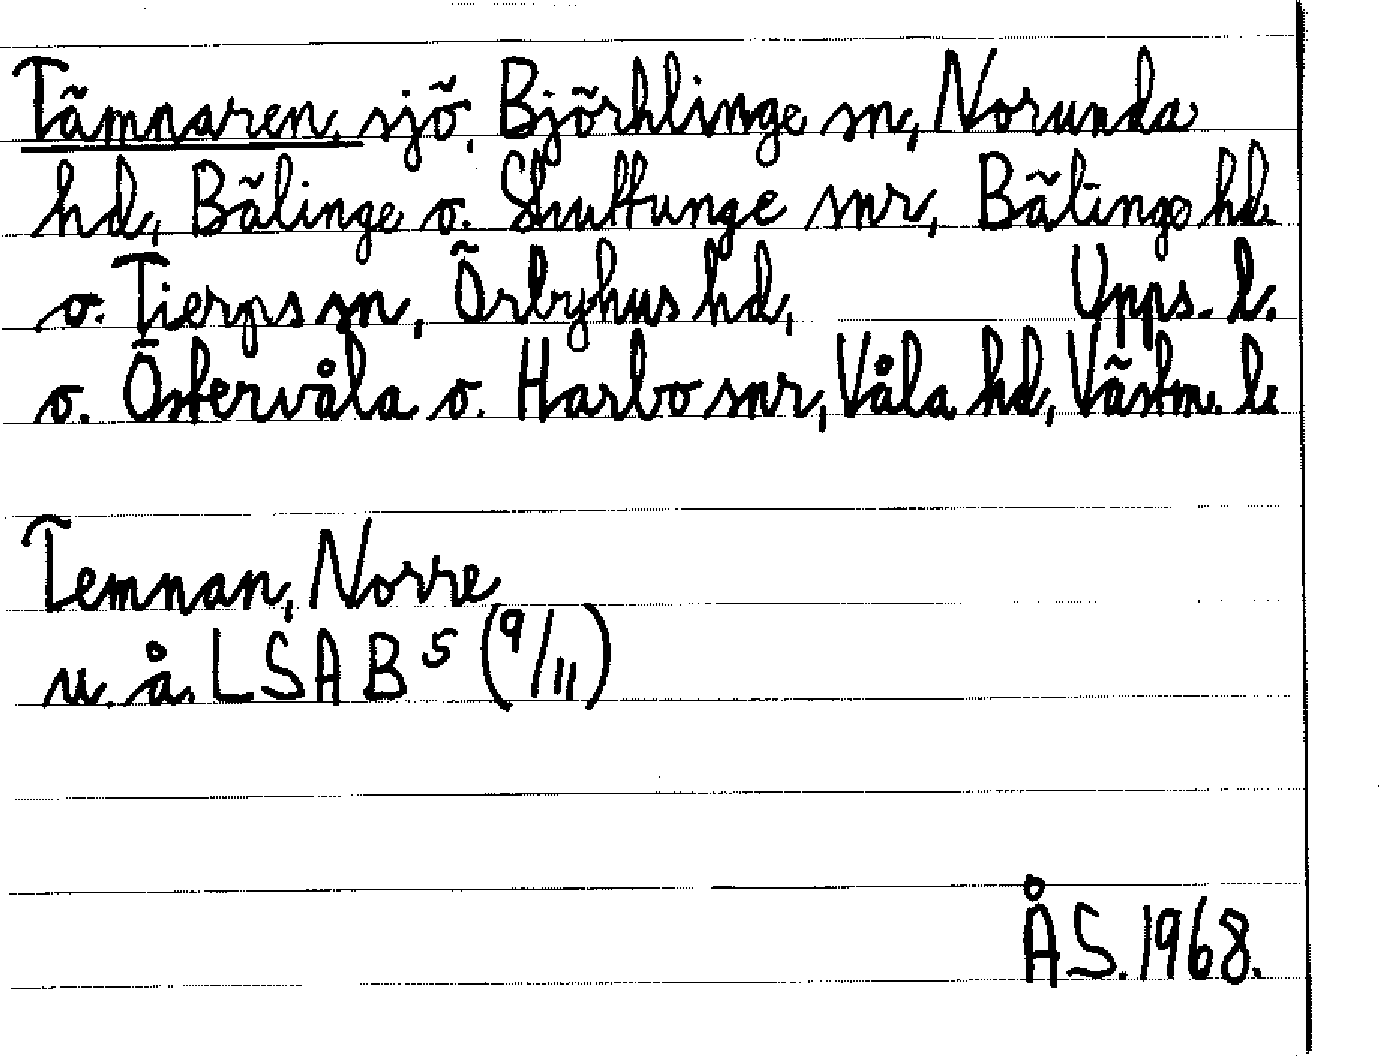 Tämnaren, sjö, Björklinge sn, Norunda
hd, Bälinge o. Skuttunge snr, Bälinge hd
o. Tierps sn, Örbyhus hd, Upps. l.
o. Östervåla o. Harbo snr, Våla hd, Västm. l.
Temnan, Norre
u. å. LSA B 5 (9/11)
ÅS. 1968.